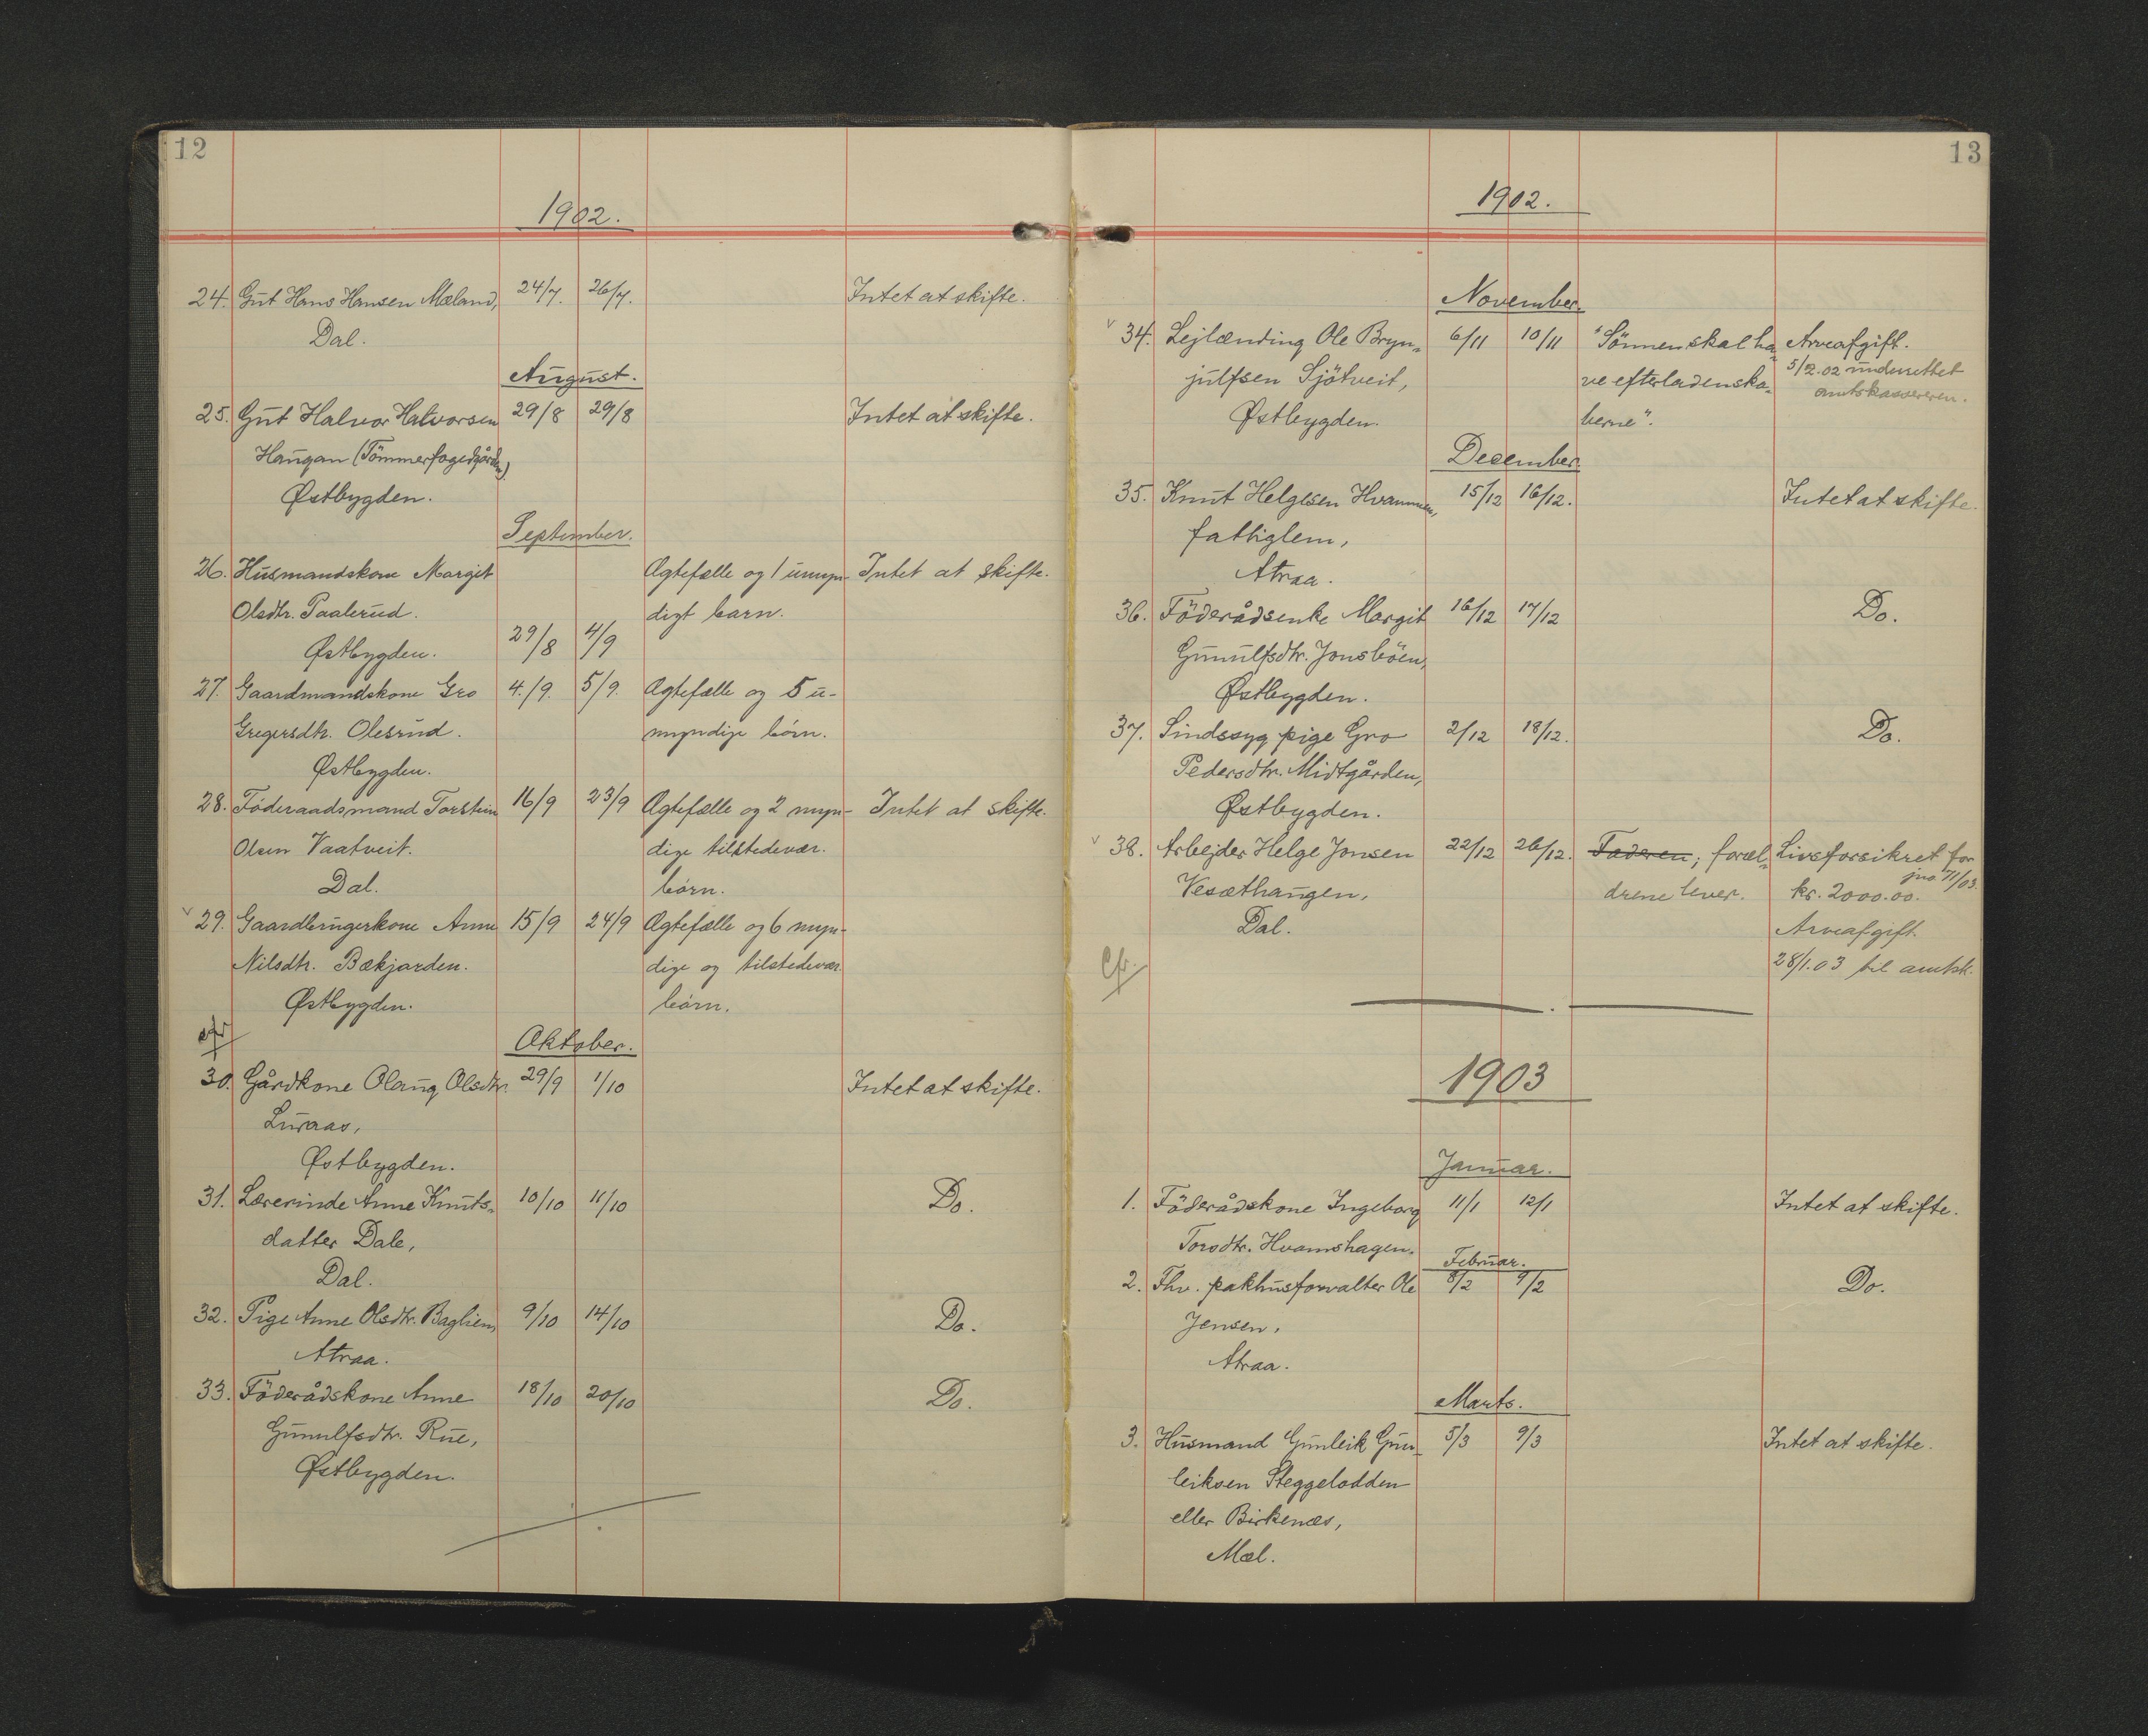 12
1902.
24. Gut Hans Hansen Mæland, 24/7. 26/7. Intet at skifte.
Dal.
August.
25. Gut Halvor Halvorsen 29/8 29/8 Intet at skifte.
Haugan (Tömmerfogedgården)
Østbygden.
September.
26. Husmandskone Margit Ægtefælle og 1 umyn- Intet at skifte.
Olsdtr. Paalerud. digt barn.
Østbygden. 29/8 4/9
27. Gaardmandskone Gro 4./9. 5/9. Ægtefælle og 5 u-
Gregersdtr. Olesrud. myndige börn.
Østbygden.
28. Föderaadsmand Torstein 16/9 23/9 Ægtefælle og 2 myn- Intet at skifte.
Olsen Vaatveit. dige tilstedevær.
Dal. börn.
v 29. Gaardbrugerkone Anne 15/9 24/9 Ægtefælle og 6 myn-
Nilsdtr. Bækjarden. dige og tilstedevær.
Østbygden. börn.
cfr
Oktober.
30. Gårdkone Olaug Olsdtr. 29/9 1/10 Intet at skifte.
Luraas,
Østbygden.
31. Lærerinde Anne Knuts- 10/10 11/10 Do.
datter Dale,
Dal.
32. Pige Anne Olsdtr. Baglien, 9/10 14/10 Do.
Atraa.
33. Föderådskone Anne 18/10 20/10 Do.
Gunulfsdtr. Rue,
Østbygden.
13
1902.
November.
v 34. Lejlænding Ole Bryn- 6/11 10/11 "Sönnen skal ha- Arveafgift.
julfsen Sjötveit, ve efterladenska- 5/12.02 underrettet
amtskassereren.
Østbygden. berne".
December.
35. Knut Helgesen Hvammen, 15/12 16/12. Intet at skifte.
fattiglem,
Atraa.
36. Föderådsenke Margit 16/12 17/12 Do.
Gunulfsdtr. Jonsböen,
Østbygden.
37. Sindssyg pige Gro 2/12 18/12. Do.
Pedersdtr. Midtgården,
Østbygden.
v 38. Arbejder Helge Jonsen 22/12 26/12. Faderen; foræl- Livsforsikret for
jno. 71/03.
Vesæthaugen, drene lever. kr. 2000.00.
Dal. Arveafgift.
Cfr. 28/1.03 til amtsk.
1903
Januar.
1. Föderådskone Ingeborg 11/1 12/1 Intet at skifte.
Torsdtr. Hvamshagen.
Februar.
2. Fhv. pakhusforvalter Ole 8/2 9/2 Do.
Jensen,
Atraa.
Marts.
3. Husmand Gunleik Gun- 5/3 9/3 Intet at skifte.
leiksen Steggelodden
eller Birkenæs,
Mæl.